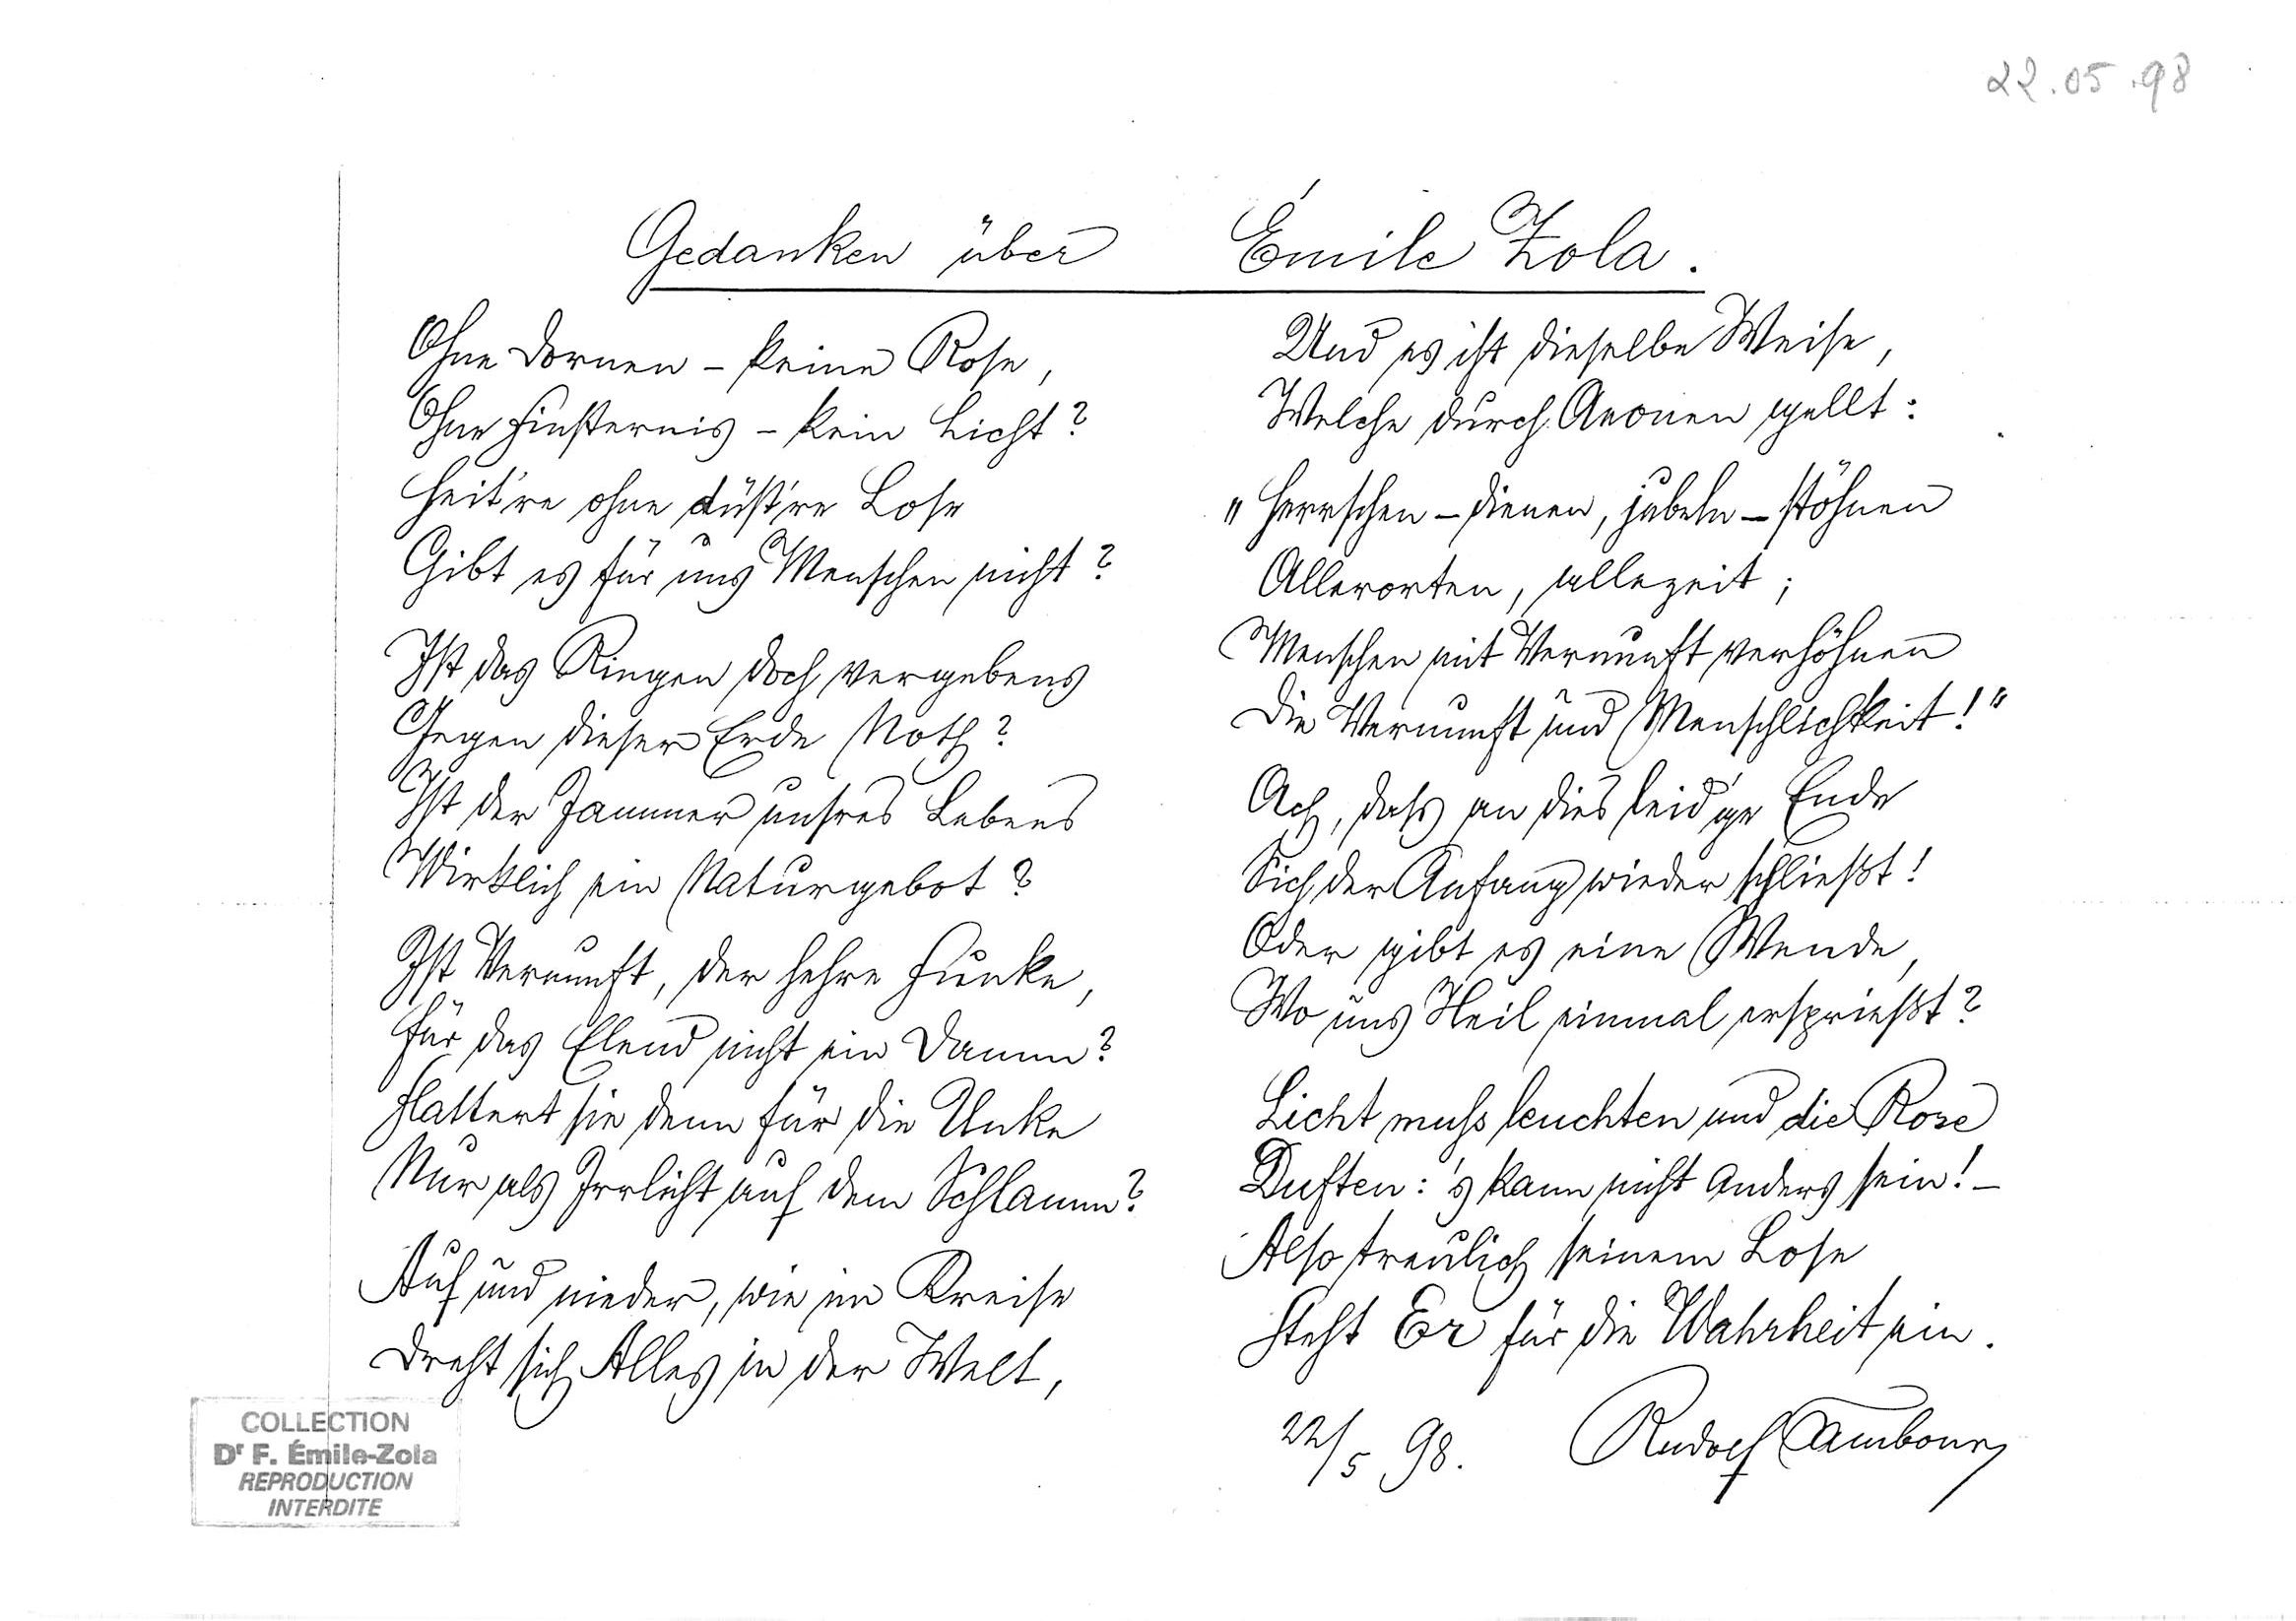 22.05.98
Gedanken über Émile Zola.
Ohne Dornen – keine Rose,
Ohne Finsternis – kein Licht?
Heit're ohne düst're Lose
Gibt es für uns Menschen nicht?
Ist das Ringen doch vergebens
Gegen dieser Erde Noth?
Ist der Jammer unsres Lebens
Wirklich ein Naturgebot?
Ist Vernunft, der hehre Funke,
Für das Elend nicht ein Damm?
Flattert sie denn für die Unke
Nur als Irrlicht auf dem Schlamm?
Auf und nieder, wie im Kreise
Dreht sich Alles in der Welt,
Und es ist dieselbe Weise,
Welche durch Aeonen gellt:
"Herrschen – dienen, jubeln – stöhnen
Allerorten, allezeit;
Menschen mit Vernunft verhöhnen
Die Vernunft und Menschlichkeit!"
Ach, dass an dies leid'ge Ende
Sich der Anfang wieder schließt!
Oder gibt es eine Wende,
Wo uns Heil einmal ersprießt?
Licht muss leuchten und die Rose
Duften: 's kann nicht anders sein! –
Also treulich seinem Lose
Steht Er für die Wahrheit ein.
22/5 98. Rudolf
COLLECTION
Dr F. Émile-Zola
REPRODUCTION
INTERDITE